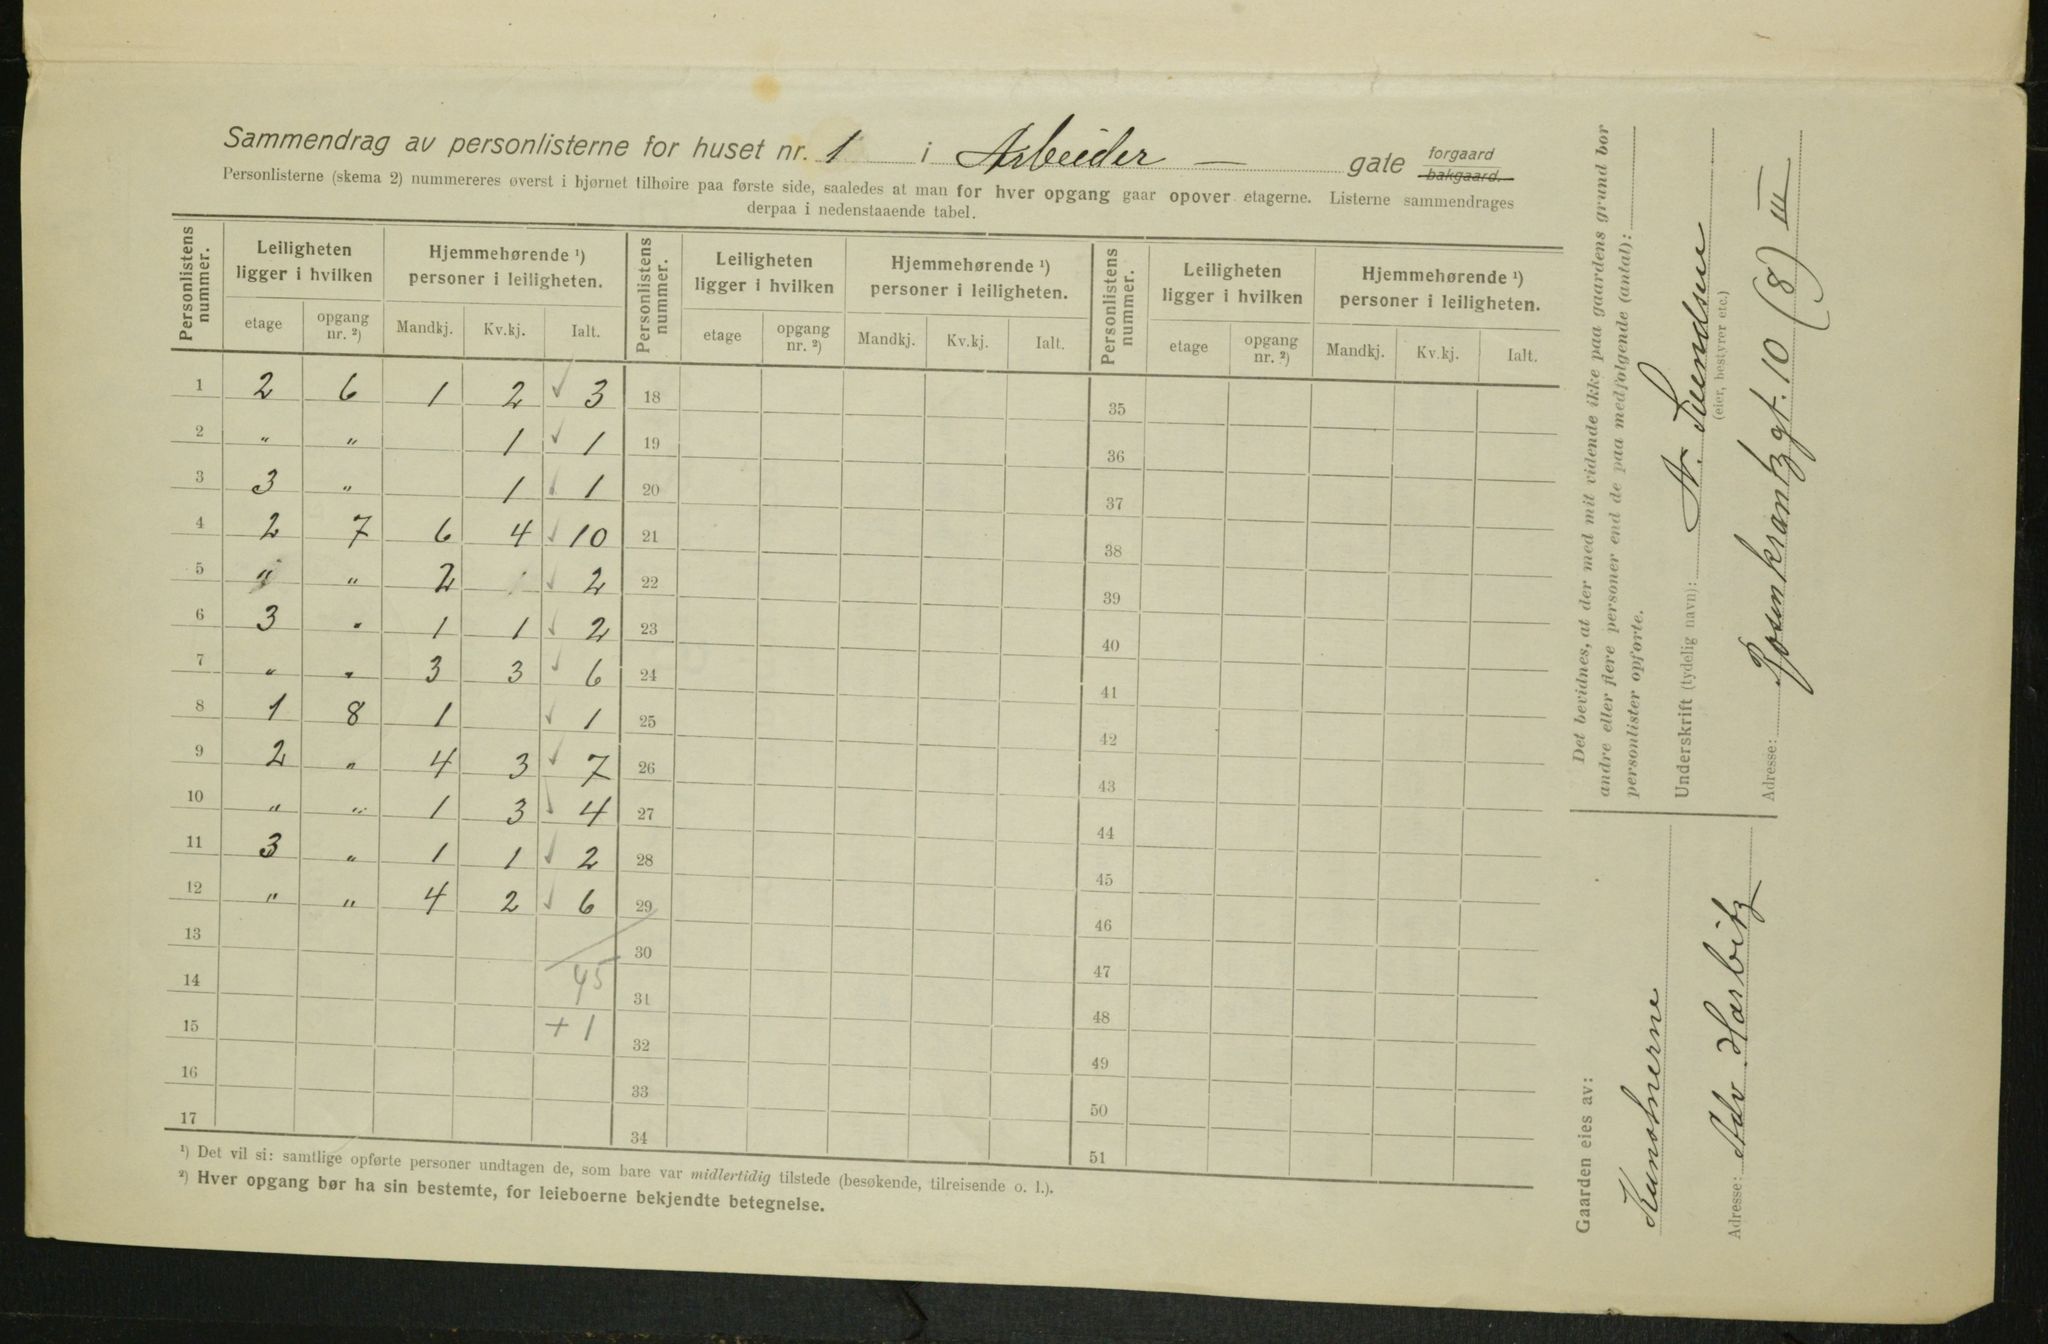 Sammendrag av personlisterne for huset nr. 1 i Arbeider — gate forgaard bakgaard.
Personlisterne (skema 2) nummereres øverst i hjørnet tilhøire paa første side, saaledes at man for hver opgang gaar opover etagerne. Listerne sammendrages
derpaa i nedenstaaende tabel.
Personlistens nummer. Leiligheten ligger i hvilken Hjemmehørende ¹) personer i leiligheten. Personlistens nummer. Leiligheten ligger i hvilken Hjemmehørende ¹) personer i leiligheten. Personlistens nummer. Leiligheten ligger i hvilken Hjemmehørende ¹) personer i leiligheten.
etage opgang nr. ²) Mandkj. Kv.kj. Ialt. etage opgang nr. ²) Mandkj. Kv.kj. Ialt. etage opgang nr. ²) Mandkj. Kv.kj. Ialt.
1 2 6 1 2 ✓ 3 18 35
2 " " 1 ✓ 1 19 36
3 3 " 1 ✓ 1 20 37
4 2 7 6 4 ✓ 10 21 38
5 " " 2 ✓ 2 22 39
6 3 " 1 1 ✓ 2 23 40
7 " " 3 3 ✓ 6 24 41
8 1 8 1 ✓ 1 25 42
9 2 " 4 3 ✓ 7 26 43
10 " " 1 3 ✓ 4 27 44
11 3 " 1 1 ✓ 2 28 45
12 " " 4 2 ✓ 6 29 46
13 30 47
14 45 31 48
15 + 1 32 49
16 33 50
17 34 51
¹) Det vil si: samtlige opførte personer undtagen de, som bare var midlertidig tilstede (besøkende, tilreisende o. l.).
²) Hver opgang bør ha sin bestemte, for leieboerne bekjendte betegnelse.
Det bevidnes, at der med mit vidende ikke paa gaardens grund bor
andre eller flere personer end de paa medfølgende (antal):
personlister opførte.
Underskrift (tydelig navn): A. Svendsen
(eier, bestyrer etc.)
Adresse: Rosenkrantzgt. 10 (8) III
Gaarden eies av:
Adresse: Adv. Harbitz